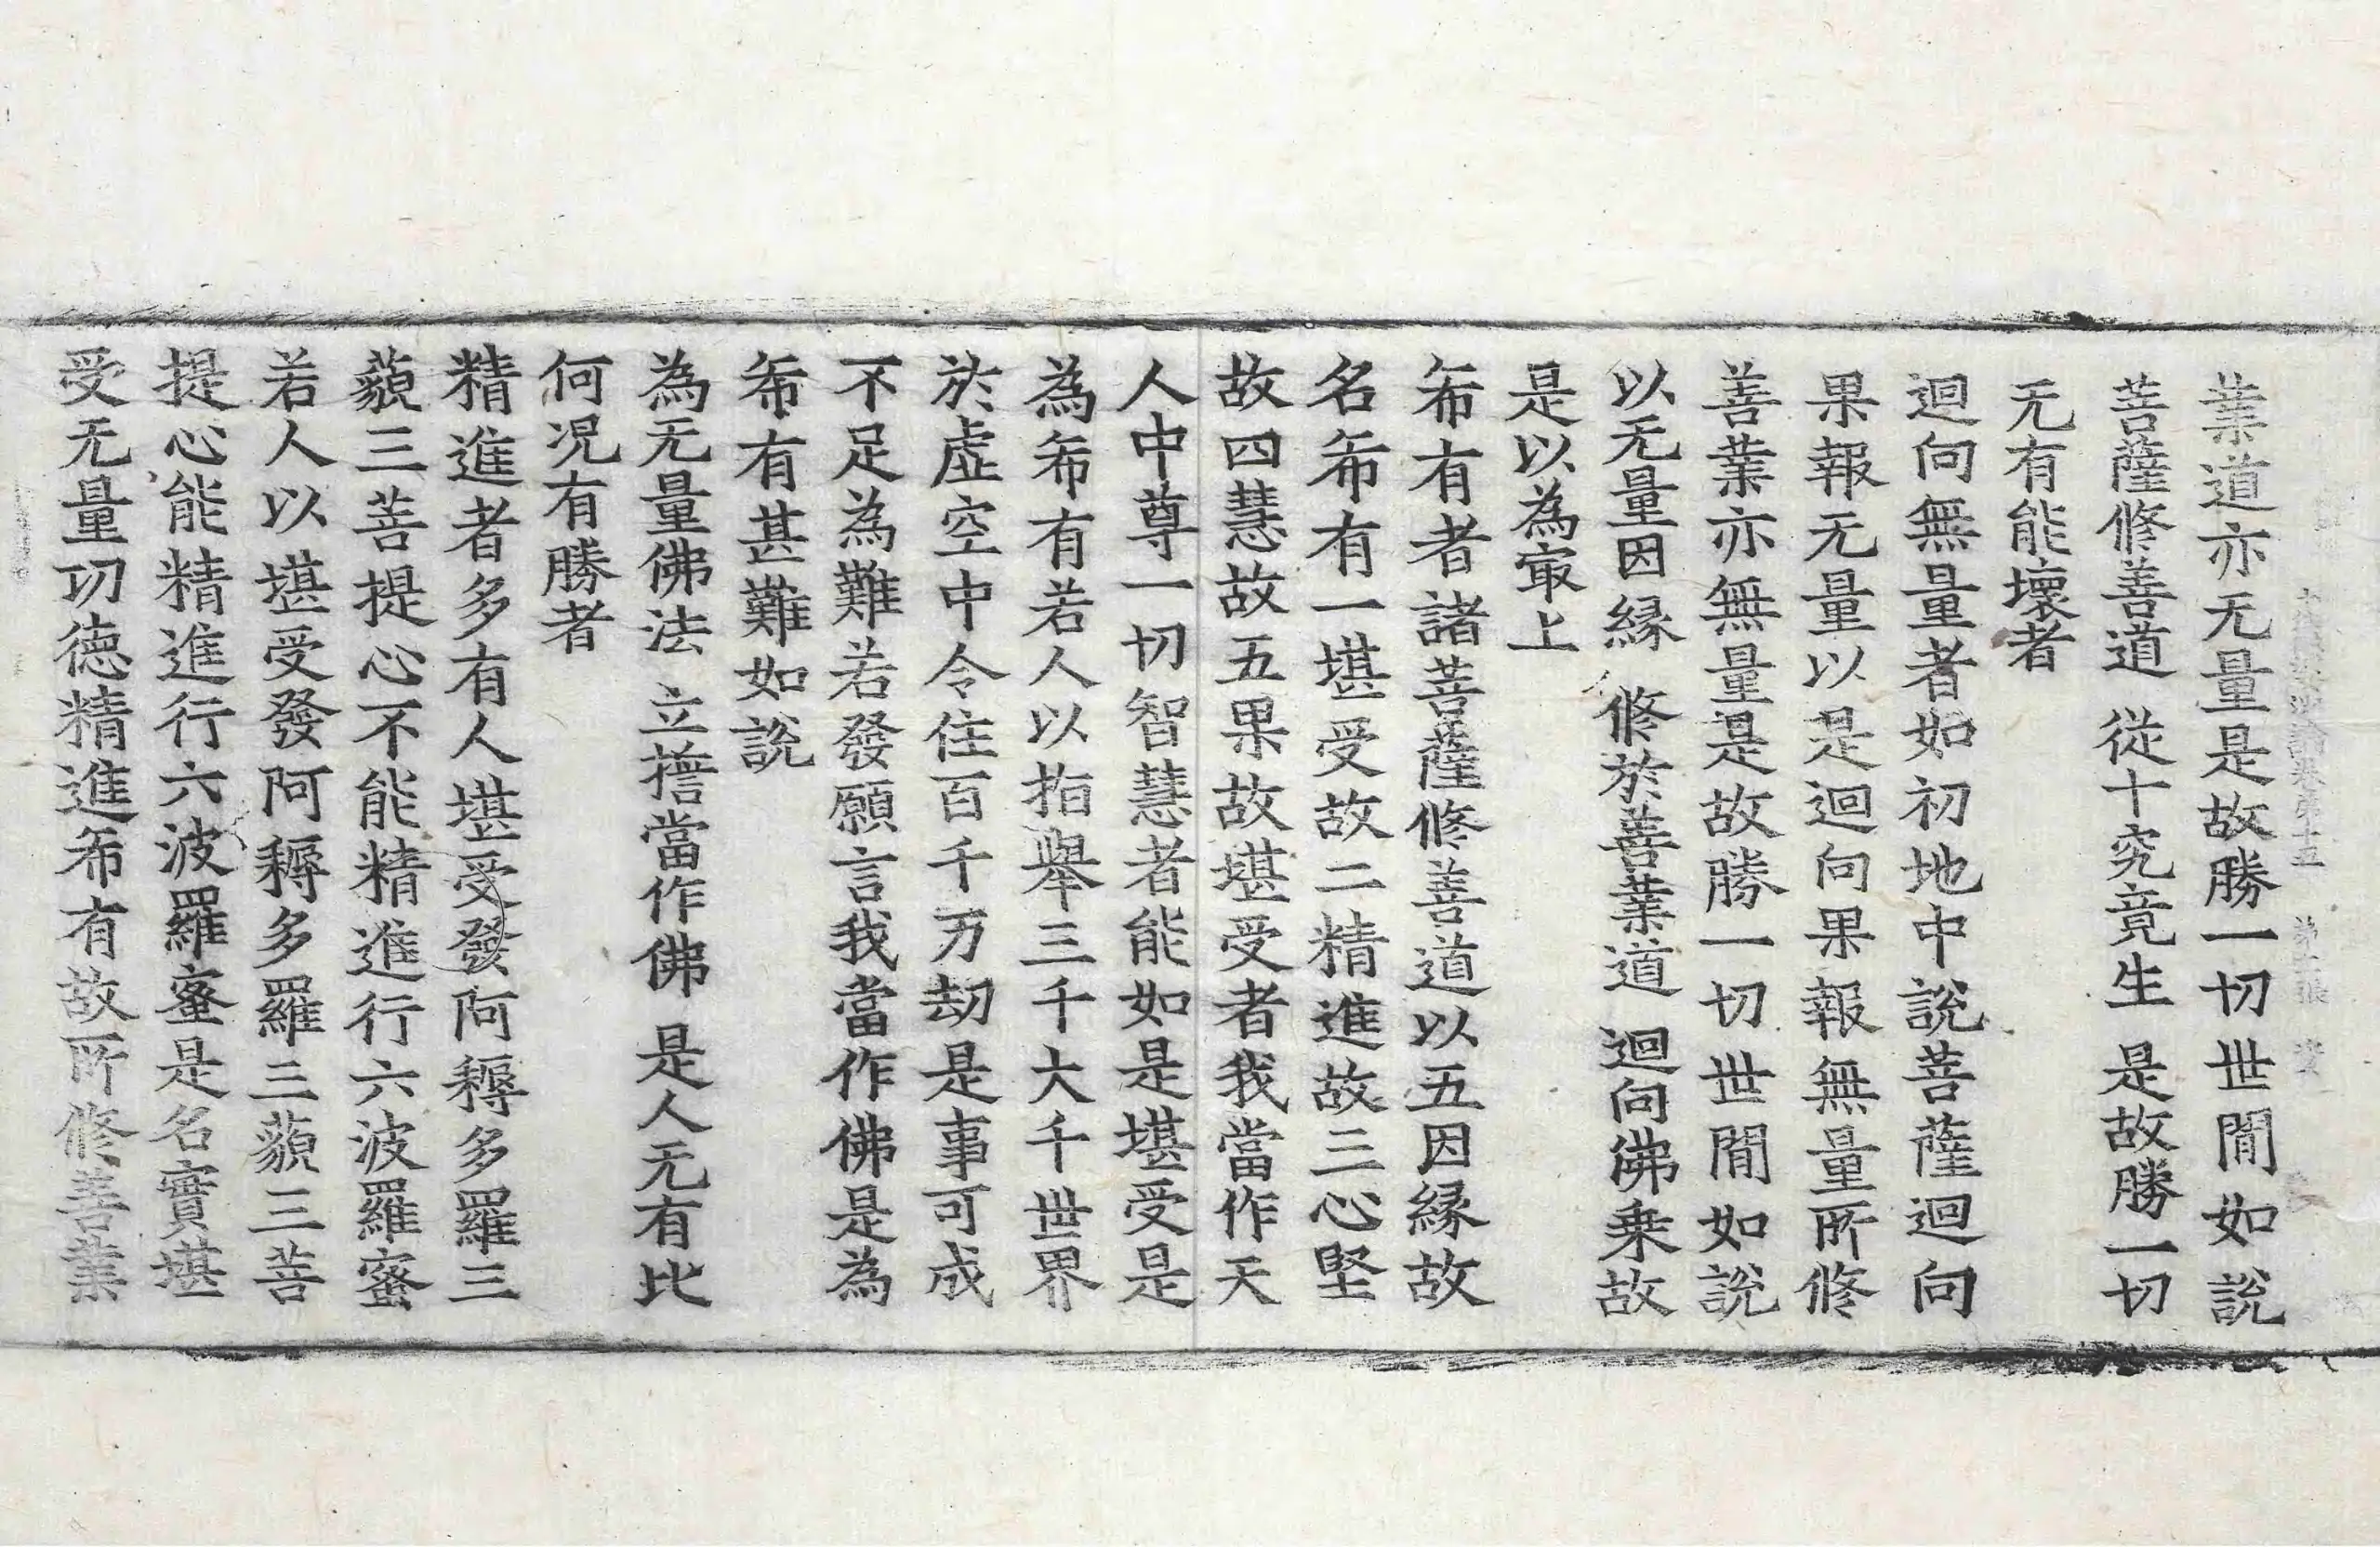 業道亦无量是故勝一切世閒如說
菩薩修善道 從十究竟生 是故勝一切
无有能壞者
迴向無量者如初地中說菩薩迴向
果報无量以是迴向果報無量所修
善業亦無量是故勝一切世閒如說
以无量因縁 修於善業道 迴向佛乗故
是以為冣上
希有者諸菩薩修善道以五因縁故
名希有一堪受故二精進故三心堅
故四慧故五果故堪受者我當作天
人中尊一切智慧者能如是堪受是
為希有若人以指舉三千大千世界
於虛空中令住百千万劫是事可成
不足為難若發願言我當作佛是為
希有甚難如說
為无量佛法 立擔當作佛 是人无有比
何况有勝者
精進者多有人堪受發阿耨多羅三
藐三菩提心不能精進行六波羅蜜
若人以堪受發阿耨多羅三藐三菩
提心能精進行六波羅蜜是名實堪
受无量功德精進希有故所修善業